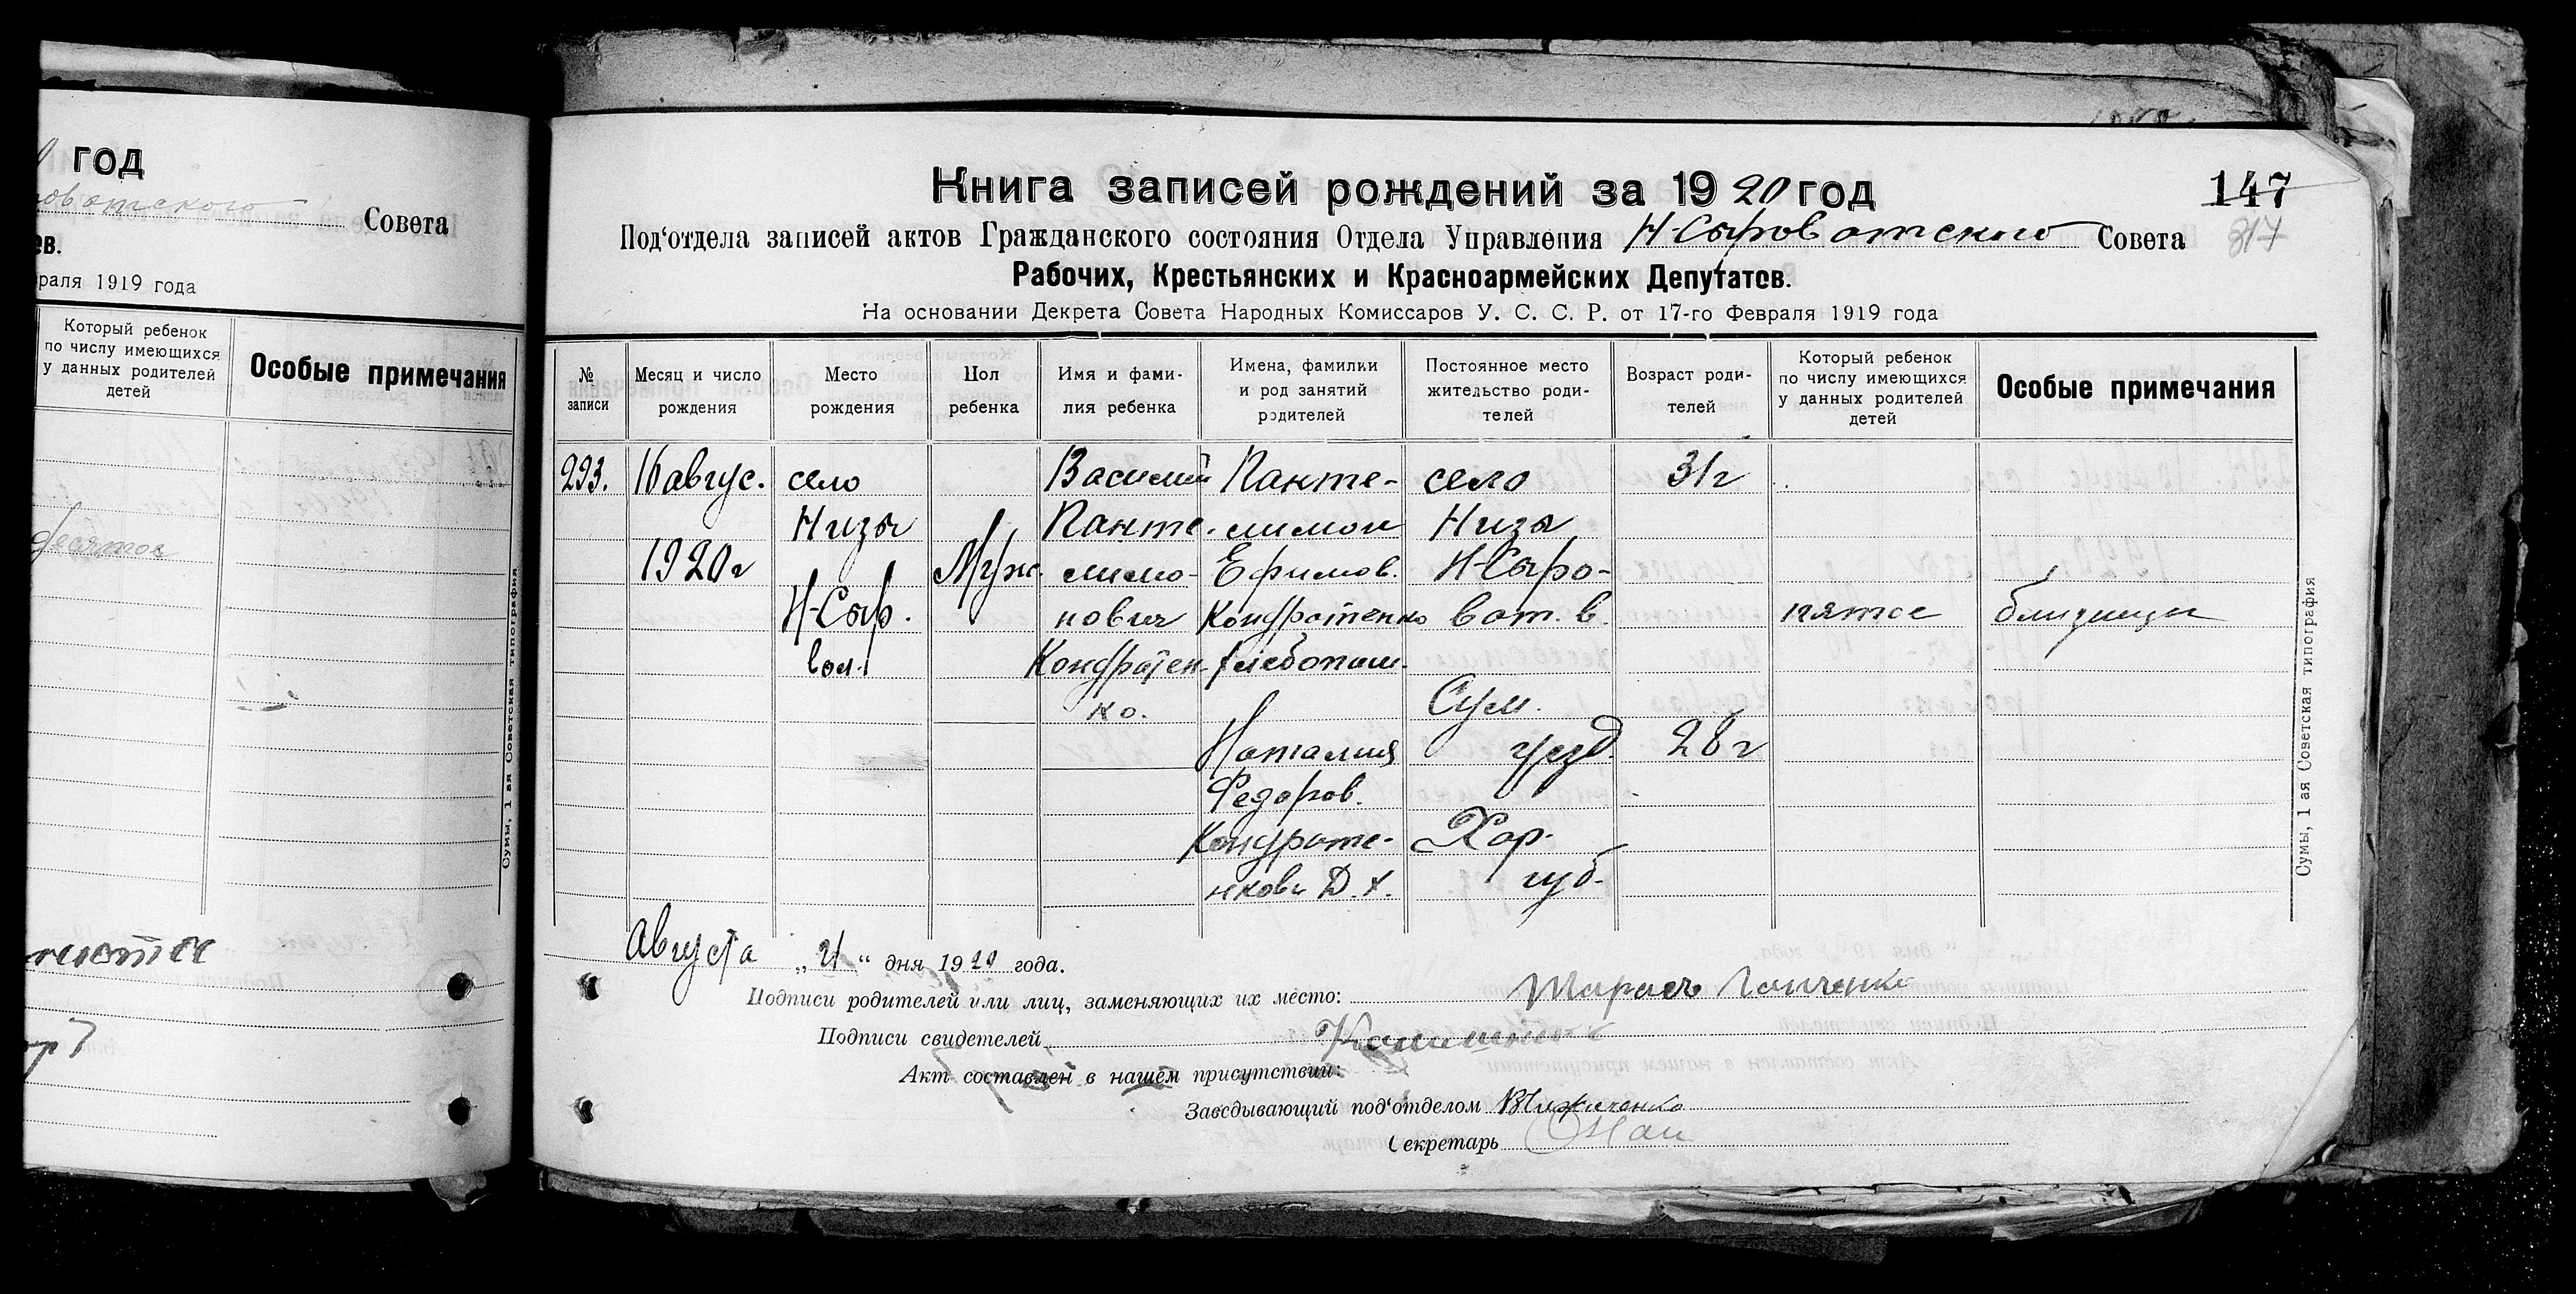 год
Совета
1919 года
Который ребенок
по числу имеющихся
у данных родителей
детей
Особые примечания
десятое
Сумы, 1 ая Советская типография
Книга записей рождений за 1920 год
147
Под‘отдела записей актов Гражданского состояния Отдела Управления Н-Сыроватского Совета
317
Рабочих, Крестьянских и Красноармейских Депутатов.
На основании Декрета Совета Народных Комиссаров У. С. С. Р. от 17-го Февраля 1919 года
№
записи
Месяц и число
рождения
Место
рождения
Пол
ребенка
Имя и фами-
лия ребенка
Имена, фамилии
и род занятий
родителей
Постоянное место
жительство роди-
телей
Возраст роди-
телей
Который ребенок
по числу имеющихся
у данных родителей
детей
Особые примечания
293.
16 авгус.
1920 г
село
Низы
Н-Сыр.
вол.
Муж.
Василий
Панте-
лимо-
нович
Кондратен-
ко.
Панте-
лимон
Ефимов.
Кондратенко
хлебопаш.
Наталия
Федоров.
Кондрате-
нкова Д. Х.
село
Низы
Н-Сыро-
ват. в.
Сум.
уезд.
Хар.
губ.
31 г
28 г
пятое
близнецы
Сумы, 1 ая Советская типография
Августа „21“ дня 1920 года.
Подписи родителей или лиц, заменяющих их место:
Подписи свидетелей
Акт составлен в нашем присутствии:
Заведывающий под‘отделом
Секретарь